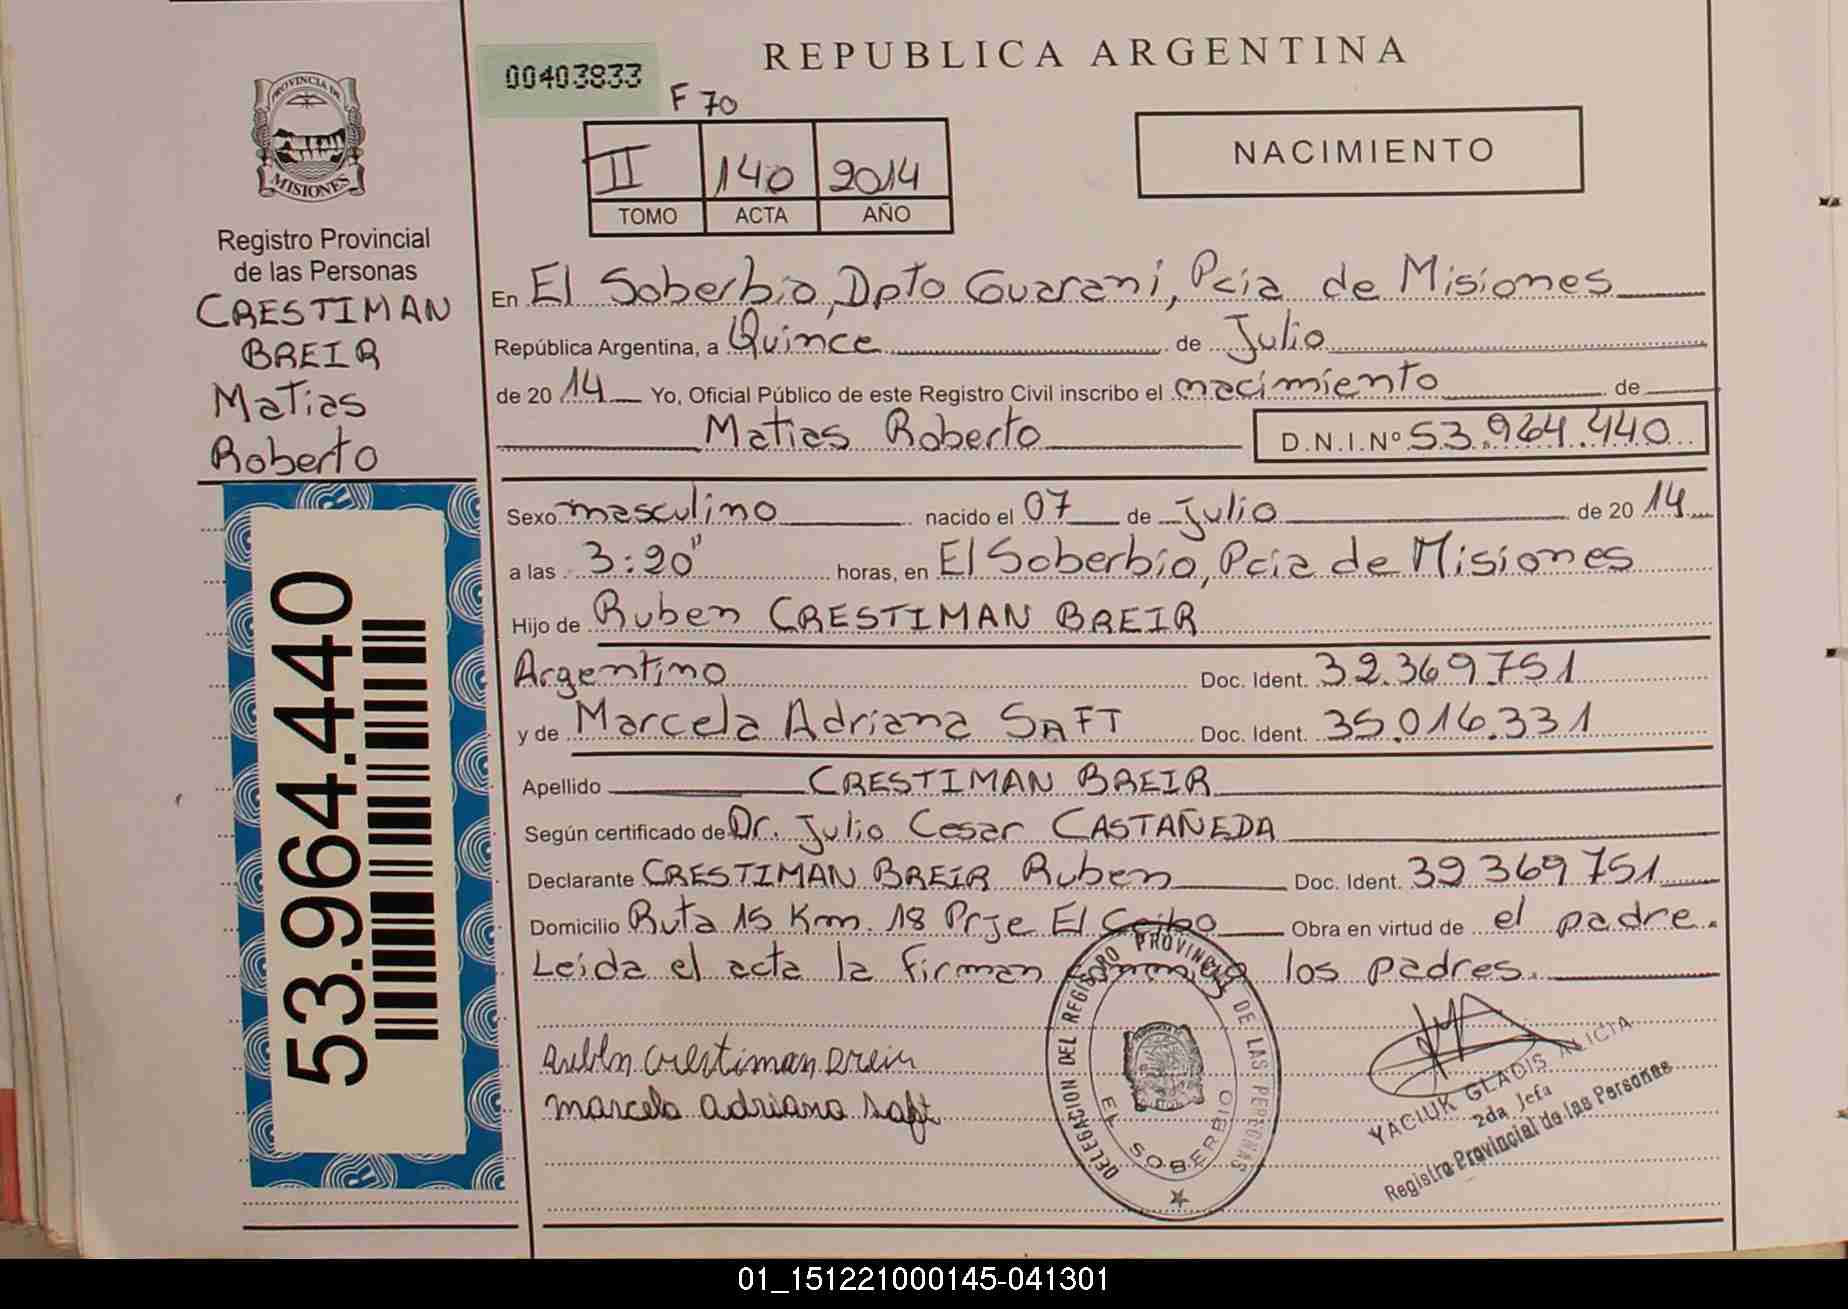 REPUBLICA ARGENTINA
00403833
F 70
II 140 2014
TOMO ACTA AÑO
NACIMIENTO
PROVINCIA DE
MISIONES
Registro Provincial
de las Personas
CRESTIMAN
BREIR
Matias
Roberto
53.964.440
En El Soberbio, Dpto Guarani, Pcia de Misiones
República Argentina, a Quince de Julio
de 2014 Yo, Oficial Público de este Registro Civil inscribo el nacimiento de
Matias Roberto D.N.I.Nº 53.964.440
Sexo masculino nacido el 07 de Julio de 2014
a las 3:20" horas, en El Soberbio, Pcia de Misiones
Hijo de Ruben CRESTIMAN BREIR
Argentino Doc. Ident. 32.369.751
y de Marcela Adriana SAFT Doc. Ident. 35.016.331
Apellido CRESTIMAN BREIR
Según certificado de Dr. Julio Cesar CASTAÑEDA
Declarante CRESTIMAN BREIR Ruben Doc. Ident. 32 369 751
Domicilio Ruta 15 Km. 18 Prje El Ceibo Obra en virtud de el padre.
Leida el acta la firman conmigo los padres.
Rubln crestiman Breir
marcela adriana saft
DELEGACION DEL REGISTRO PROVINCIAL DE LAS PERSONAS
EL SOBERBIO
YACIUK GLADIS ALICIA
2da Jefa
Registro Provincial de las Personas
01_151221000145-041301